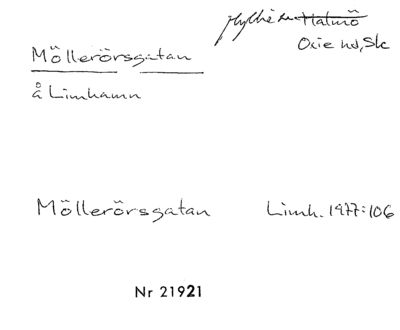 Hyllie sn Malmö
Oxie hd, Sk
Möllerörsgatan
å Limhamn
Möllerörsgatan Limh. 1977:106
Nr 21921